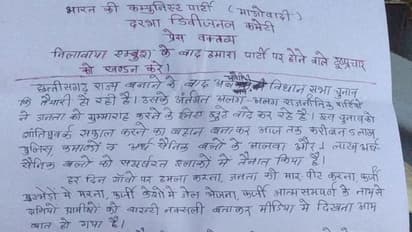 भारत की कम्युनिस्ट पार्टी (माओवादी)
दरभा डिवीजनल कमेटी
प्रेस वक्तव्य
निलावाया एम्बुश के बाद हमारा पार्टी पर होने वाले दुष्प्रचार
को खण्डन करें।
छत्तीसगढ़ राज्य बनाने के बाद विधान सभा चुनाव
कि तैयारी हो रही है। उसके अंतर्गत अलग-अलग राजनीतिक पार्टियां
ने जनता को गुमराह करने के लिए झुठे वादे कर रहे हैं। इस चुनाव को
शांतिपूर्वक सफल करने का बहाना बनाकर आज तक करीबन लाख
पुलिस, कमांडो व अर्ध सैनिक बलों के अलावा और 1 लाख अर्ध
सैनिक बलों को संघर्षरत इलाकों में तैनात किया है।
हर दिन गांवों पर हमला करना, जनता की मार पीट करना, फर्जी
मुठभेड़ों में मारना, फर्जी केसों में जेल भेजना, फर्जी आत्मसमर्पण के नाम से
ग्रामीणों को वारन्टी नक्सली बताकर मीडिया में दिखना आम
बात हो गया है।